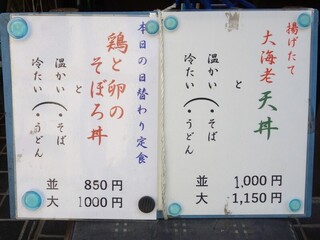 揚げたて
大海老天丼
と
温かい
冷たい
・そば
・うどん
並 1,000円
大 1,150円
本日の日替わり定食
鶏と卵の
そぼろ丼
と
温かい
冷たい
・そば
・うどん
並 850円
大 1000円